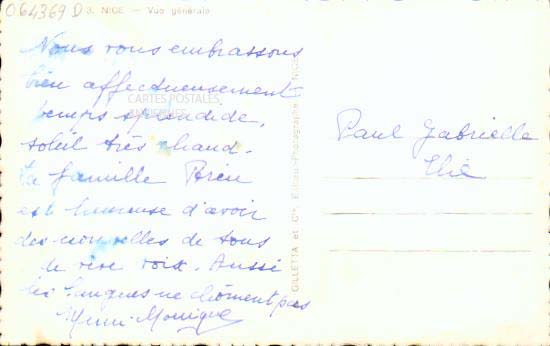 064369 D
3. NICE — Vue générale
Nous vous embrassons
bien affectueusement
temps splendide,
soleil très chaud.
La famille Brieu
est heureuse d'avoir
des nouvelles de tous
de vive voix. Aussi
les langues ne chôment pas
Henri-Monique
CARTES POSTALES
ANCIENNES
GILLETTA et Cie, Editeur-Photographe
Paul Gabrielle
Elie